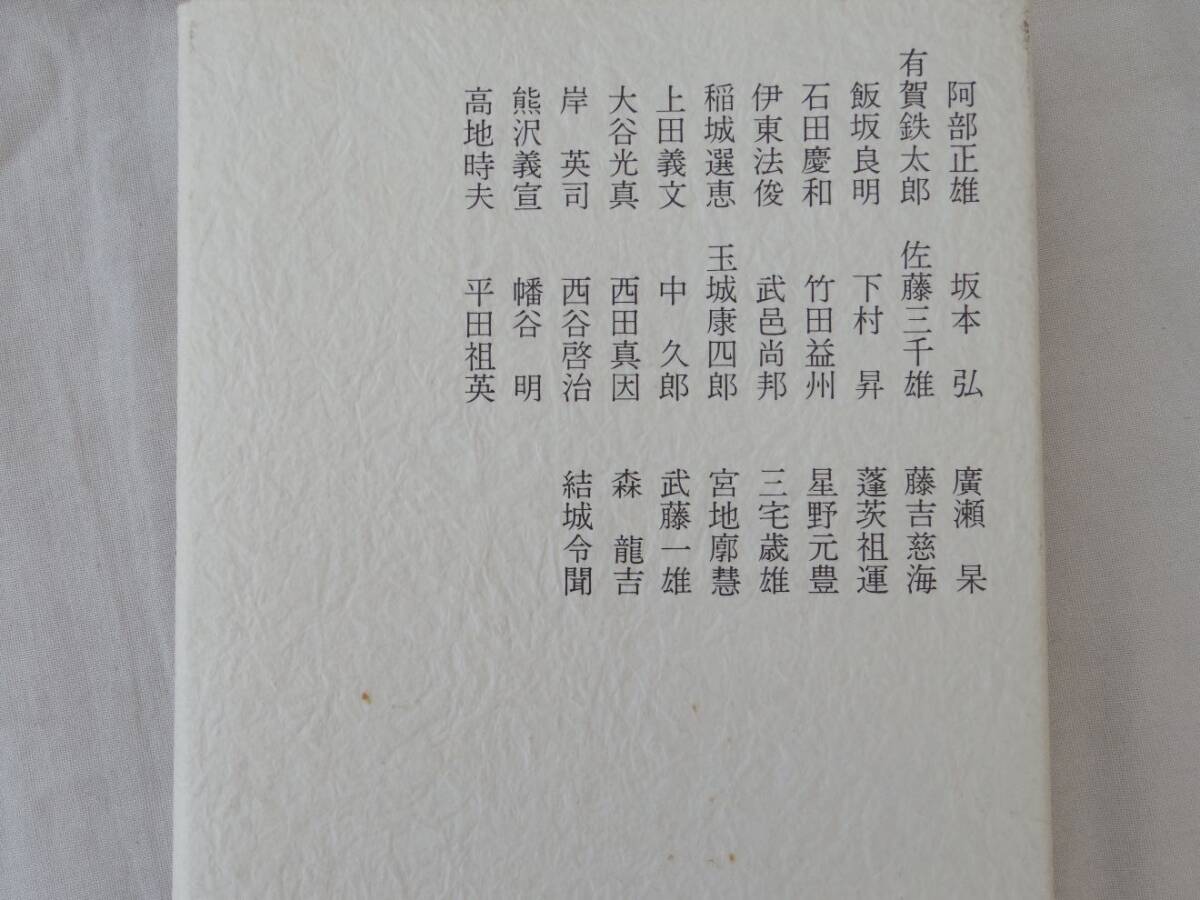 阿部正雄
有賀鉄太郎
飯坂良明
石田慶和
伊東法俊
稲城選恵
上田義文
大谷光真
岸 英司
熊沢義宣
高地時夫
坂本 弘
佐藤三千雄
下村 昇
竹田益州
武邑尚邦
玉城康四郎
中 久郎
西田真因
西谷啓治
幡谷 明
平田祖英
廣瀬 杲
藤吉慈海
蓬茨祖運
星野元豊
三宅歳雄
宮地廓慧
武藤一雄
森 龍吉
結城令聞